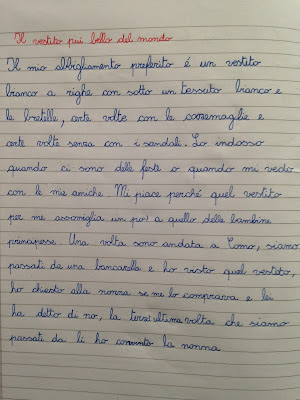 Il vestito più bello del mondo
Il mio abbigliamento preferito é un vestito
bianco a righe con sotto un tessuto bianco e
le bretelle, certe volte con le cosemaglie e
certe volte senza con i sandali. Lo indosso
quando ci sono delle feste o quando mi vedo
con le mie amiche. Mi piace perché quel vestito
per me assomiglia un po' a quello delle bambine
principesse. Una volta sono andata a Como, siamo
passati da una bancarella e ho visto quel vestito,
ho chiesto alla nonna se me lo comprava e lei
ha detto di no, la terzultima volta che siamo
passati da lì ho convinto la nonna